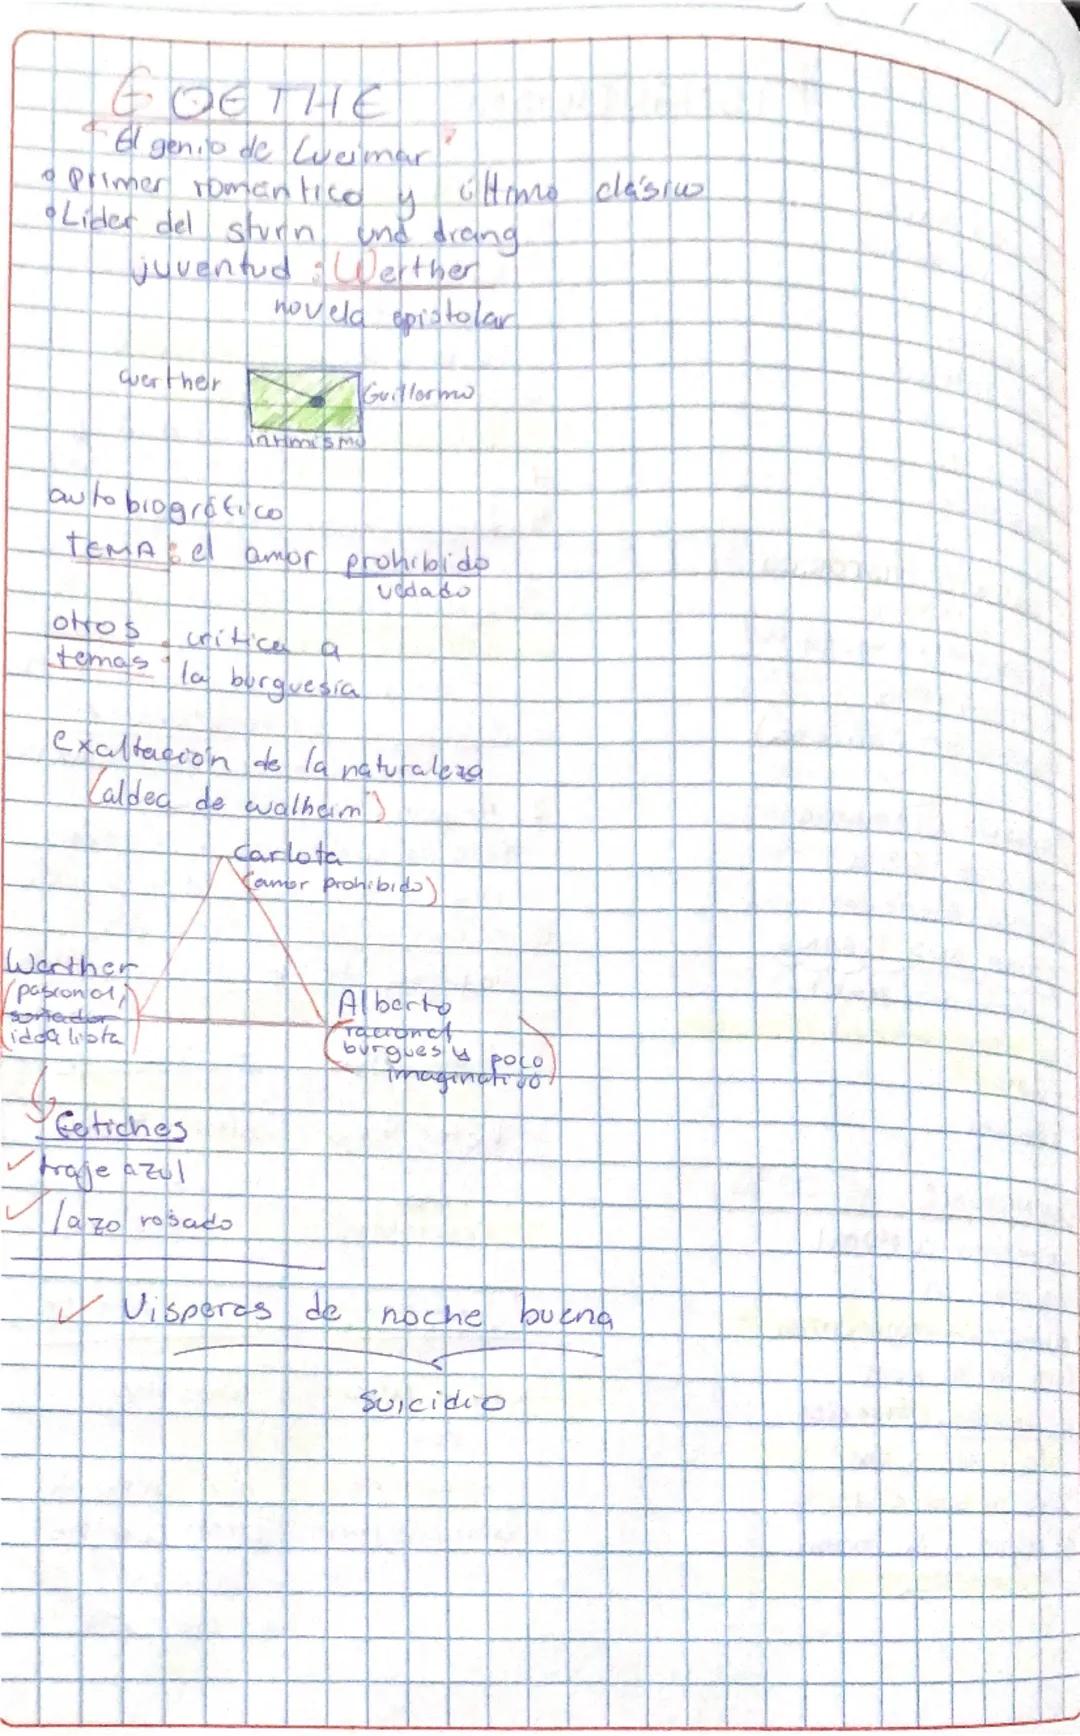 GOETHE
"El genio de Weimar"
• Primer romántico y último clásico
• Lider del sturn und drang
juventud : Werther
novela epistolar
werther
Guillermo
intimismo
autobiográfico
TEMA : el amor prohibido
vedado
otros temas : critica a
la burguesía
exaltación de la naturaleza
(aldea de walheim)
Carlota
(amor prohibido)
Werther
(pasional,
soñador
idealista)
Alberto
(racional
burgues y poco
imaginativo)
fetiches
✓ traje azul
✓ lazo rosado
✓ Visperas de noche buena
Suicidio